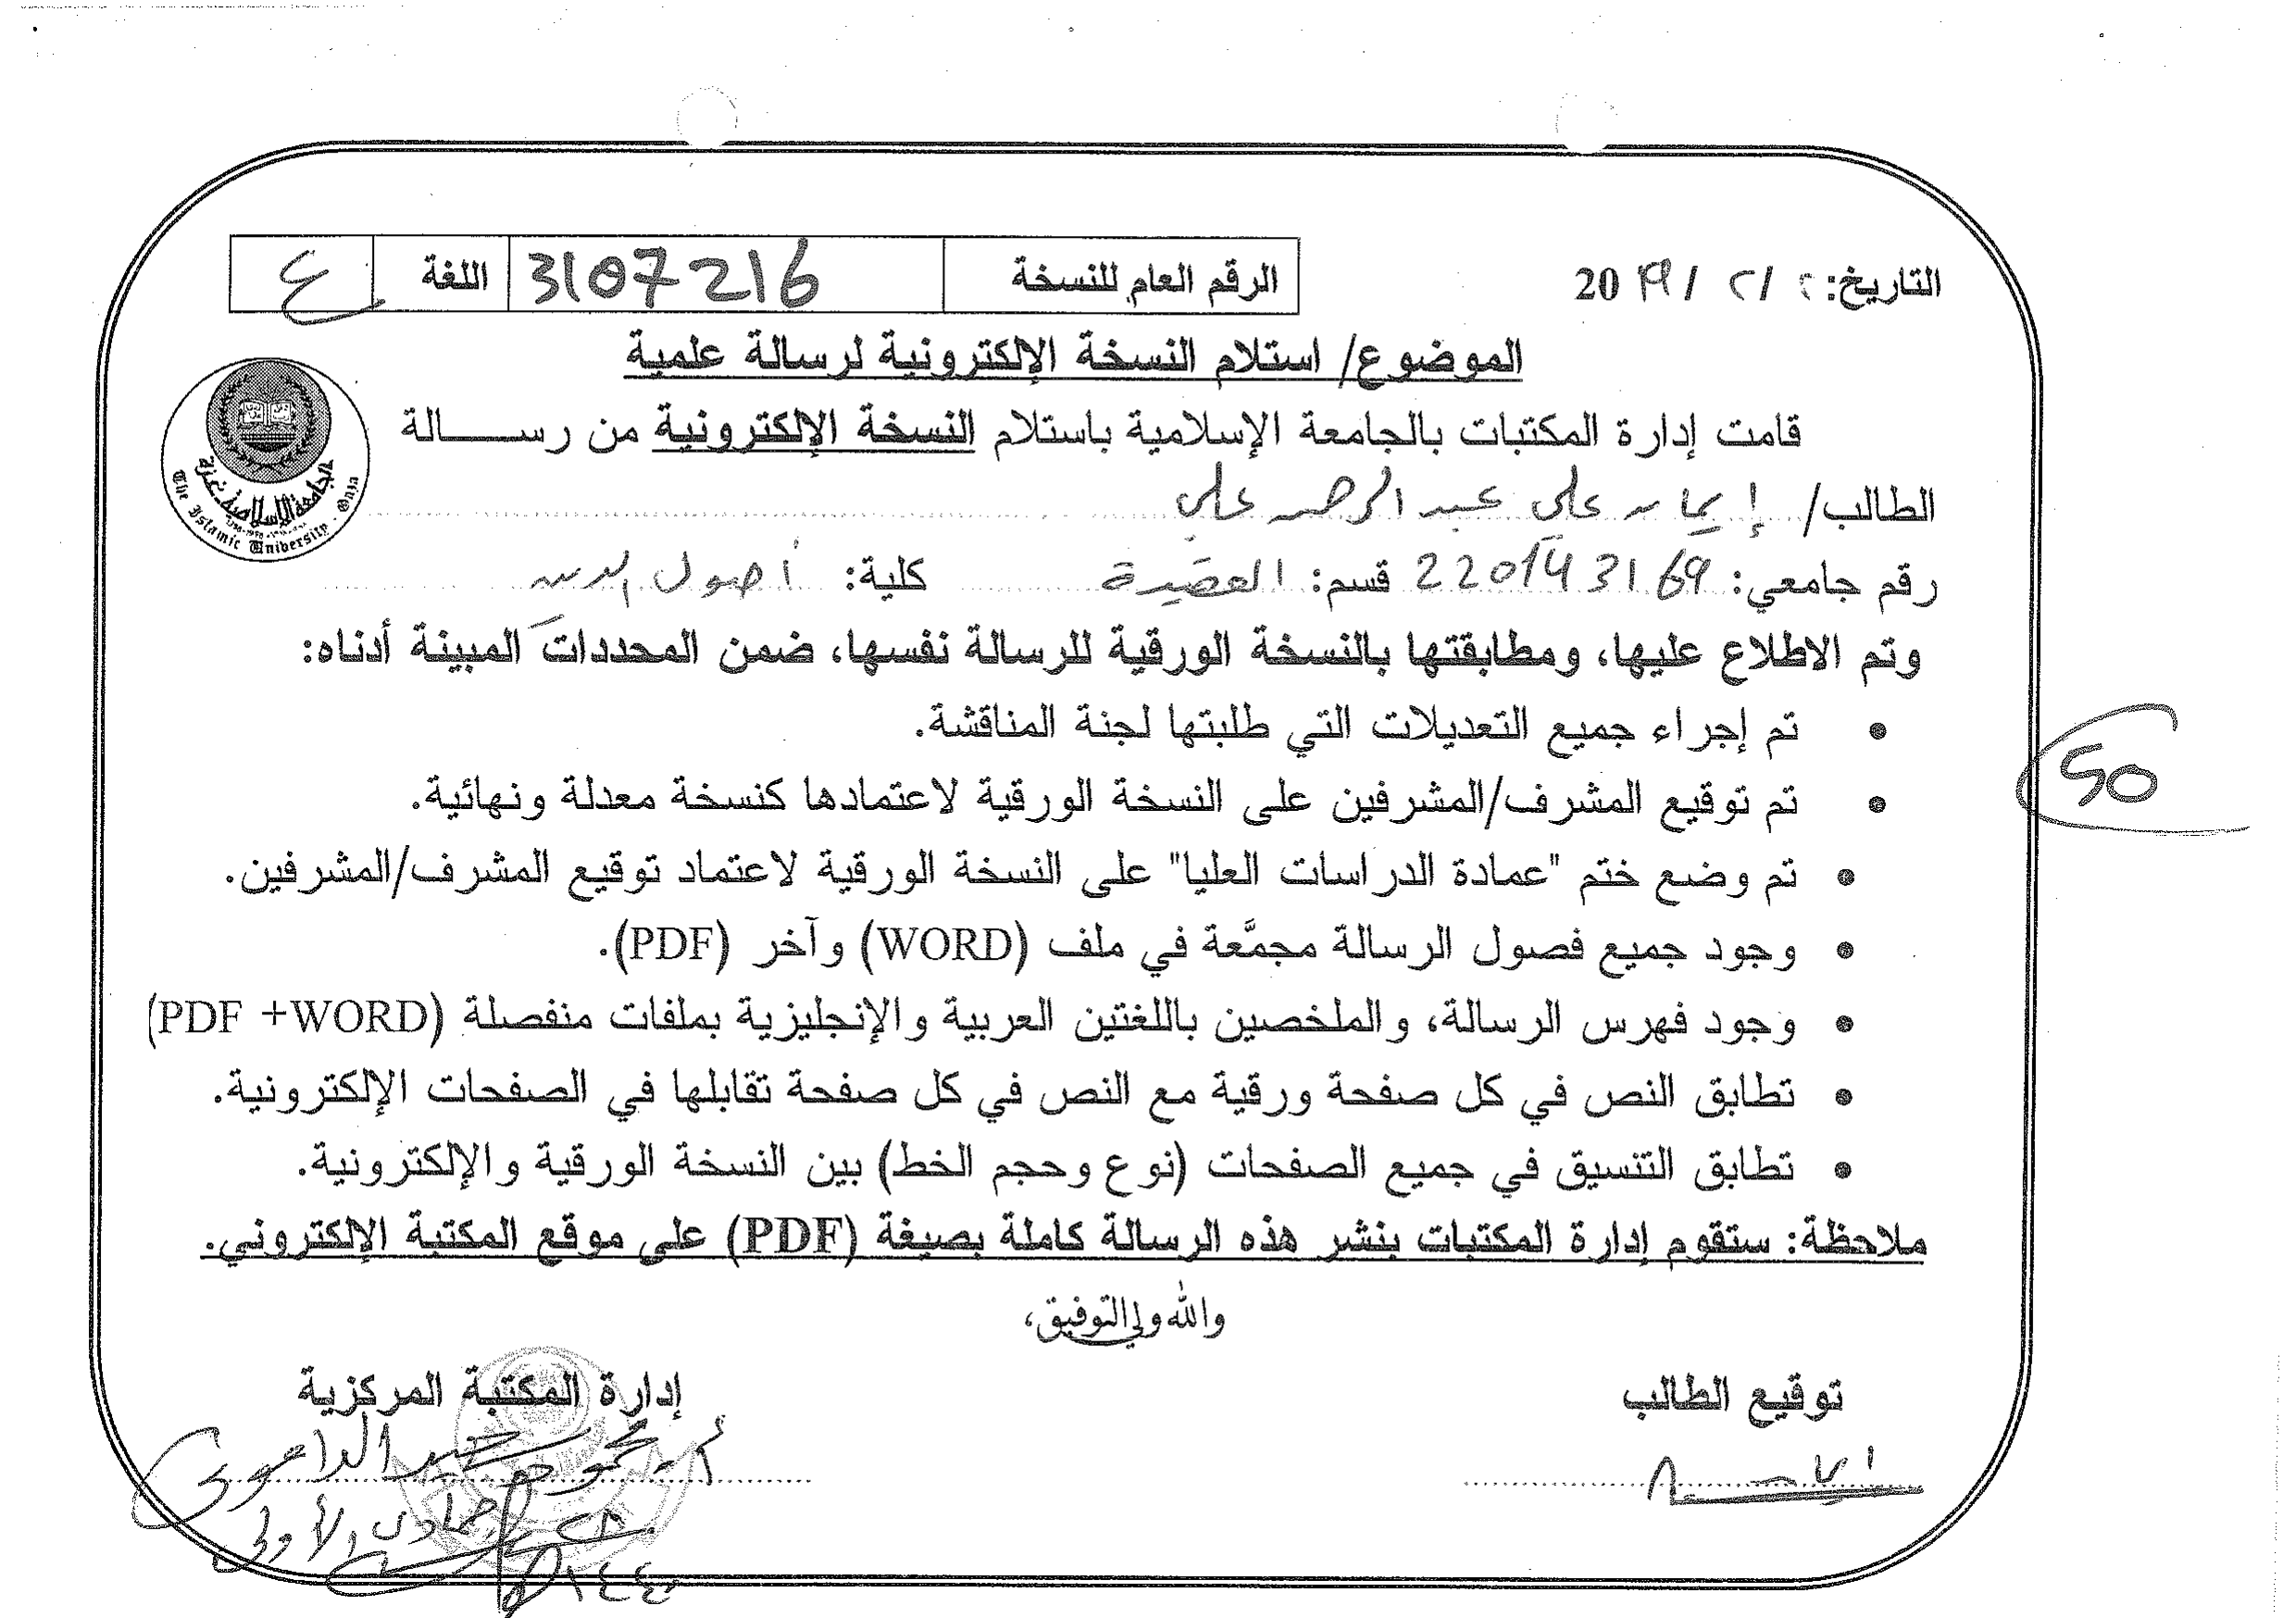 التاريخ: ٢ / ٢ / 20١٩
الرقم العام للنسخة 3107216 اللغة ع
الموضوع/ استلام النسخة الإلكترونية لرسالة علمية
قامت إدارة المكتبات بالجامعة الإسلامية باستلام النسخة الإلكترونية من رســـــالة
الطالب/ إيمان علي عبد الرحمن علي
رقم جامعي: 220143169 قسم: العقيدة كلية: أصول الدين
وتم الاطلاع عليها، ومطابقتها بالنسخة الورقية للرسالة نفسها، ضمن المحددات المبينة أدناه:
• تم إجراء جميع التعديلات التي طلبتها لجنة المناقشة.
• تم توقيع المشرف/المشرفين على النسخة الورقية لاعتمادها كنسخة معدلة ونهائية.
• تم وضع ختم "عمادة الدراسات العليا" على النسخة الورقية لاعتماد توقيع المشرف/المشرفين.
• وجود جميع فصول الرسالة مجمَّعة في ملف (WORD) وآخر (PDF).
• وجود فهرس الرسالة، والملخصين باللغتين العربية والإنجليزية بملفات منفصلة (PDF +WORD)
• تطابق النص في كل صفحة ورقية مع النص في كل صفحة تقابلها في الصفحات الإلكترونية.
• تطابق التنسيق في جميع الصفحات (نوع وحجم الخط) بين النسخة الورقية والإلكترونية.
ملاحظة: ستقوم إدارة المكتبات بنشر هذه الرسالة كاملة بصيغة (PDF) على موقع المكتبة الإلكتروني.
والله ولي التوفيق،
توقيع الطالب
إدارة المكتبة المركزية
جمادى الأولى
الجامعة الإسلامية غزة
The Islamic University - Gaza
50